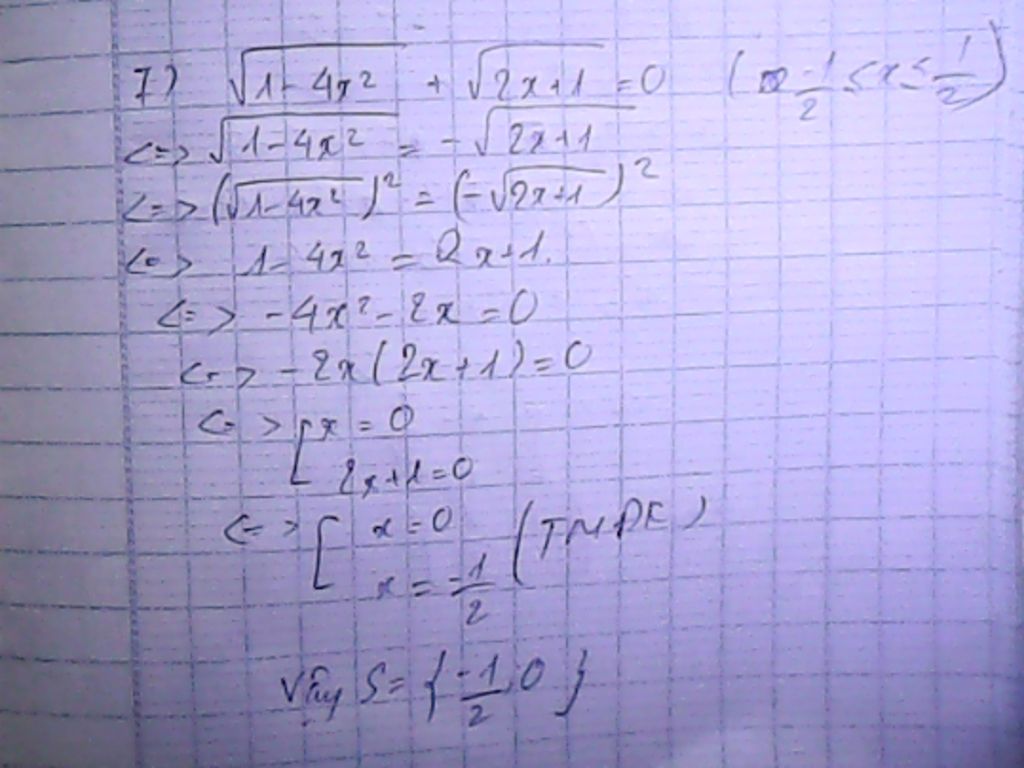 7) √(1-4x²) + √(2x+1) = 0 (-1/2 ≤ x ≤ 1/2)
<=> √(1-4x²) = -√(2x+1)
<=> (√(1-4x²))² = (-√(2x+1))²
<=> 1-4x² = 2x+1.
<=> -4x² - 2x = 0
<=> -2x(2x+1) = 0
<=> [x = 0
2x+1=0
<=> [x = 0 (TMĐK)
x = -1/2
Vậy S = {-1/2, 0}